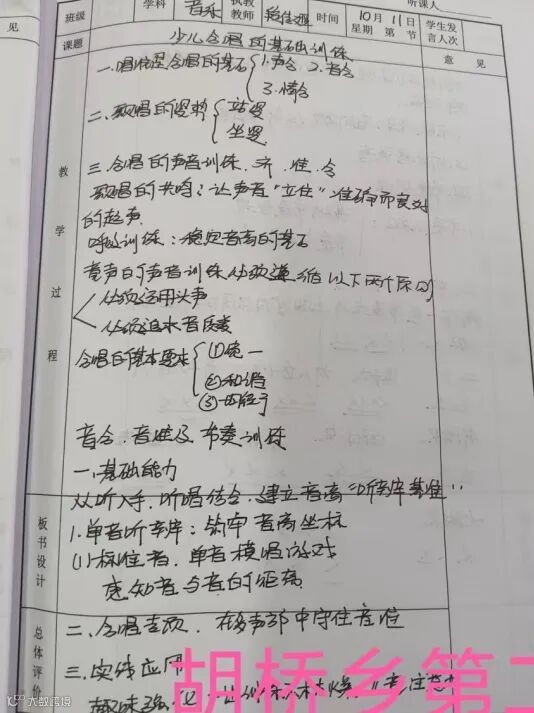 听课人
班级
学科 音乐
执教教师
时间 10月11日 星期 第 节
学生发言人次
见
课题 少儿合唱的基础训练
意 见
一.唱准是合唱的基石 1.声合 2.音合
3.情合
二.歌唱的姿势 站姿
坐姿
教学过程
三.合唱的声音训练.齐.准.合
歌唱的共鸣:让声音"立住"准确而良好
的起声
呼吸训练:稳定音高的基石
童声的声音训练必须遵循以下两个原则
必须运用头声
必须追求音质美
合唱的基本要求 ①统一
②和谐
③
音合.音准及节奏训练
一.基础能力
从听入手.听唱结合.建立音高"听觉基准"
板书设计
1.单音听觉库:筑牢音高坐标
(1)标准音.单音模唱游戏
感知音与音的距离
总体评价
二.合唱专项.在多声部中守住音准
三.实践应用
趣味强化
胡桥乡第二
大数跨境